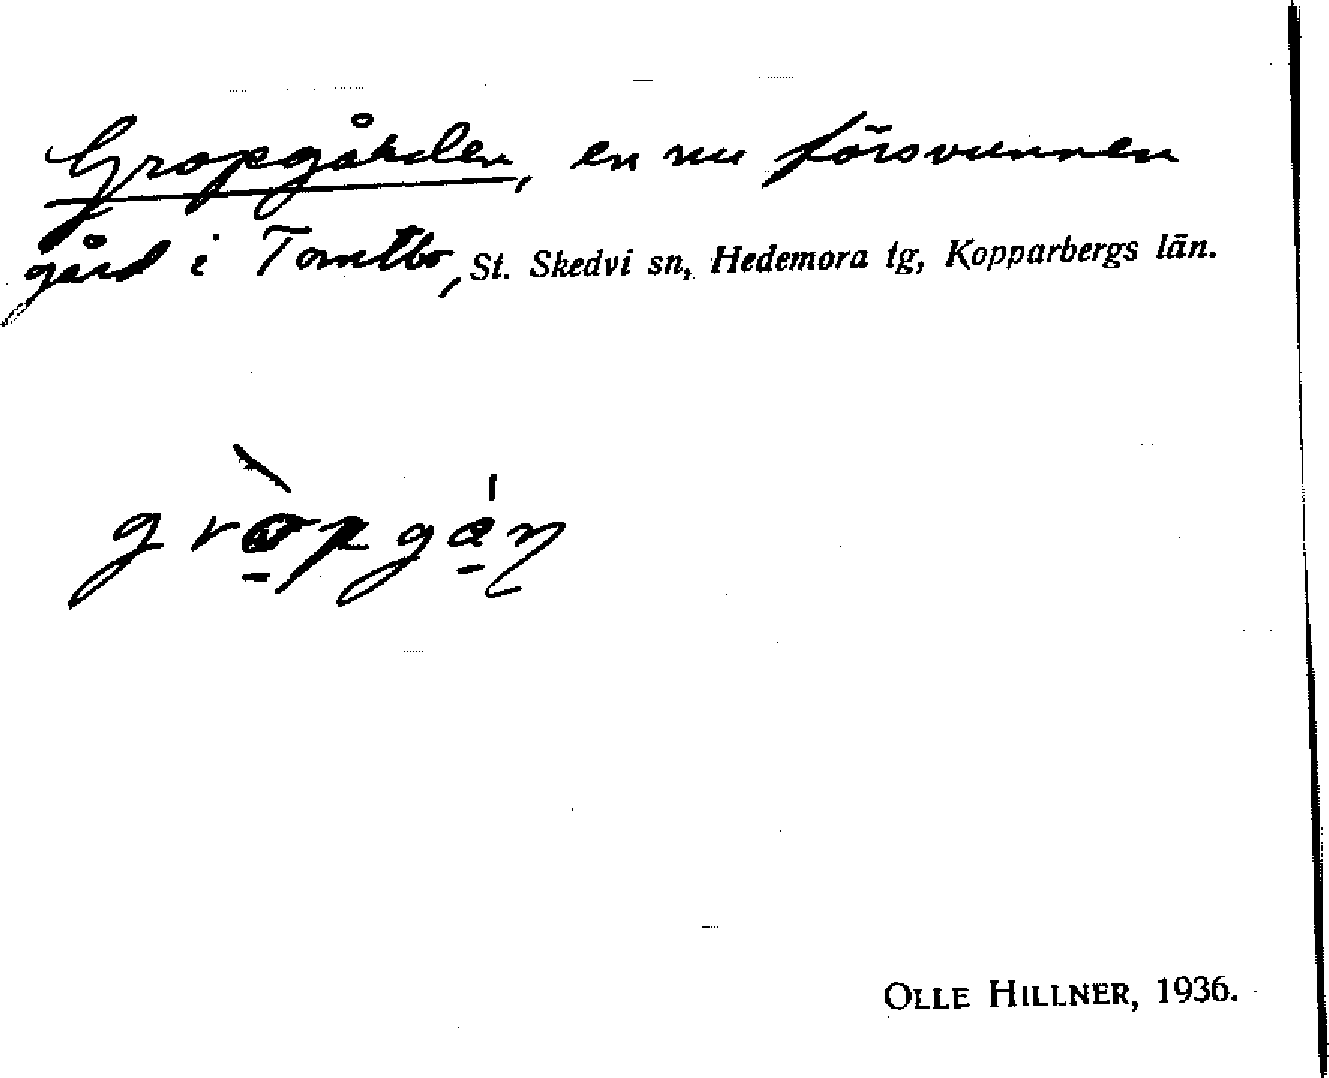 Gropgården, en nu försvunnen
gård i Tomtbo, St. Skedvi sn, Hedemora tg, Kopparbergs län.
OLLE HILLNER, 1936.